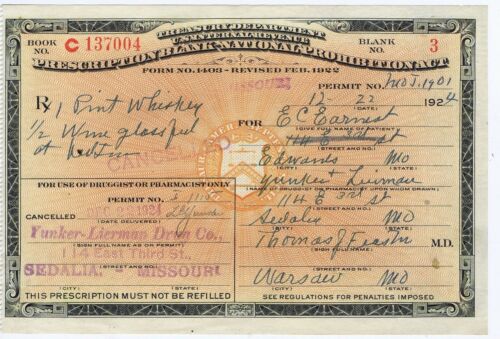 TREASURY DEPARTMENT
U.S. INTERNAL REVENUE
BOOK NO. C 137004
BLANK NO. 3
PRESCRIPTION BLANK-NATIONAL PROHIBITION ACT
FORM NO. 1403 - REVISED FEB. 1922
MISSOURI
PERMIT NO. MO J. 1901
12 - 22 1924
Rx 1 Pint Whiskey
1/2 Wine glassful
at
CANCELLED
FOR E C Earnest
(GIVE FULL NAME OF PATIENT)
114 E 3rd St
(STREET AND NO.)
Edwards Mo
(CITY) (STATE)
FOR USE OF DRUGGIST OR PHARMACIST ONLY
CANCELLED
(DATE DELIVERED)
Yunker-Lierman Drug Co.,
(SIGN FULL NAME AS ON PERMIT)
114 East Third St.,
(STREET AND NO.)
SEDALIA, - MISSOURI
(CITY) (STATE)
THIS PRESCRIPTION MUST NOT BE REFILLED
Yunker Lierman
(NAME OF DRUGGIST OR PHARMACIST UPON WHOM DRAWN)
114 E 3rd St
(STREET AND NO.)
Sedalia Mo
(CITY) (STATE)
Thomas J M.D.
(SIGN FULL NAME)
(STREET AND NO.)
Warsaw Mo
(CITY) (STATE)
SEE REGULATIONS FOR PENALTIES IMPOSED